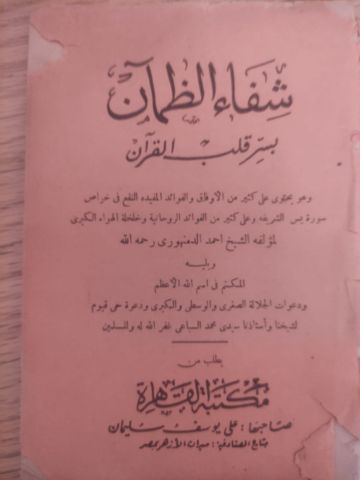 شفاء الظمآن
بسر قلب القرآن
وهو يحتوى على كثير من الاوفاق والفوائد المفيده النفع فى خواص
سورة يس الشريفه وعلى كثير من الفوائد الروحانية وخلخلة الهواء الكبرى
لمؤلفه الشيخ احمد الدمنهورى رحمه الله
ويليه
المكتم فى اسم الله الأعظم
ودعوات الجلالة الصغرى والوسطى والكبرى ودعوة حى قيوم
لشيخنا وأستاذنا سيدى محمد السباعى غفر الله له وللمسلمين
يطلب من
مكتبة القاهرة
صاحبها : على يوسف سليمان
بشارع الصنادقية بميدان الأزهر بمصر